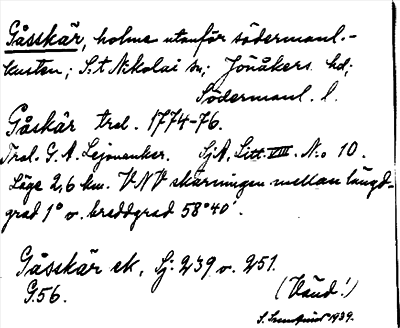 Gåsskär, holme utanför södermanl.-
kusten; S:t Nikolai sn; Jönåkers hd;
Södermanl. l.
Gåskär trol. 1774-76.
Trol. G. A. Lejonanker. SjA, Litt. VIII. N:o 10.
Läge 2,6 km. VNV skärningen mellan längd-
grad 1° o. breddgrad 58°40'.
Gåsskär ek. Sj. 239 o. 251.
G.56.
(Vänd!)
1939.